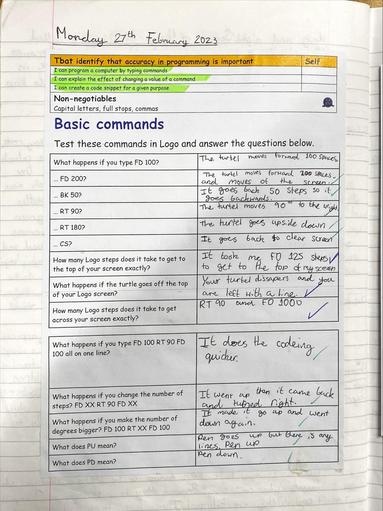 Monday 27th February 2023
Tbat identify that accuracy in programming is important Self
I can program a computer by typing commands
I can explain the effect of changing a value of a command
I can create a code snippet for a given purpose
Non-negotiables
Capital letters, full stops, commas
Basic commands
Test these commands in Logo and answer the questions below.
What happens if you type FD 100?
The turtel moves forward 100 spaces
... FD 200?
The turtel moves forward 200 spaces
and moves of the screen
... BK 50?
It goes back 50 steps so it
goes backwards.
... RT 90?
The turtel moves 90° to the right
... RT 180?
The turtel goes upside down
... CS?
It goes back to clear screen
How many Logo steps does it take to get to
the top of your screen exactly?
It took me FD 125 steps
to get to the top of my screen
What happens if the turtle goes off the top
of your Logo screen?
Your turtel dissapers and you
are left with a line.
How many Logo steps does it take to get
across your screen exactly?
RT 90 and FD 1000
What happens if you type FD 100 RT 90 FD
100 all on one line?
It does the codeing
quicker
What happens if you change the number of
steps? FD XX RT 90 FD XX
It went up then it came back
and turned right.
What happens if you make the number of
degrees bigger? FD 100 RT XX FD 100
It made it go up and went
down again.
What does PU mean?
Pen goes up but there is any
lines. Pen up
What does PD mean?
Pen down.